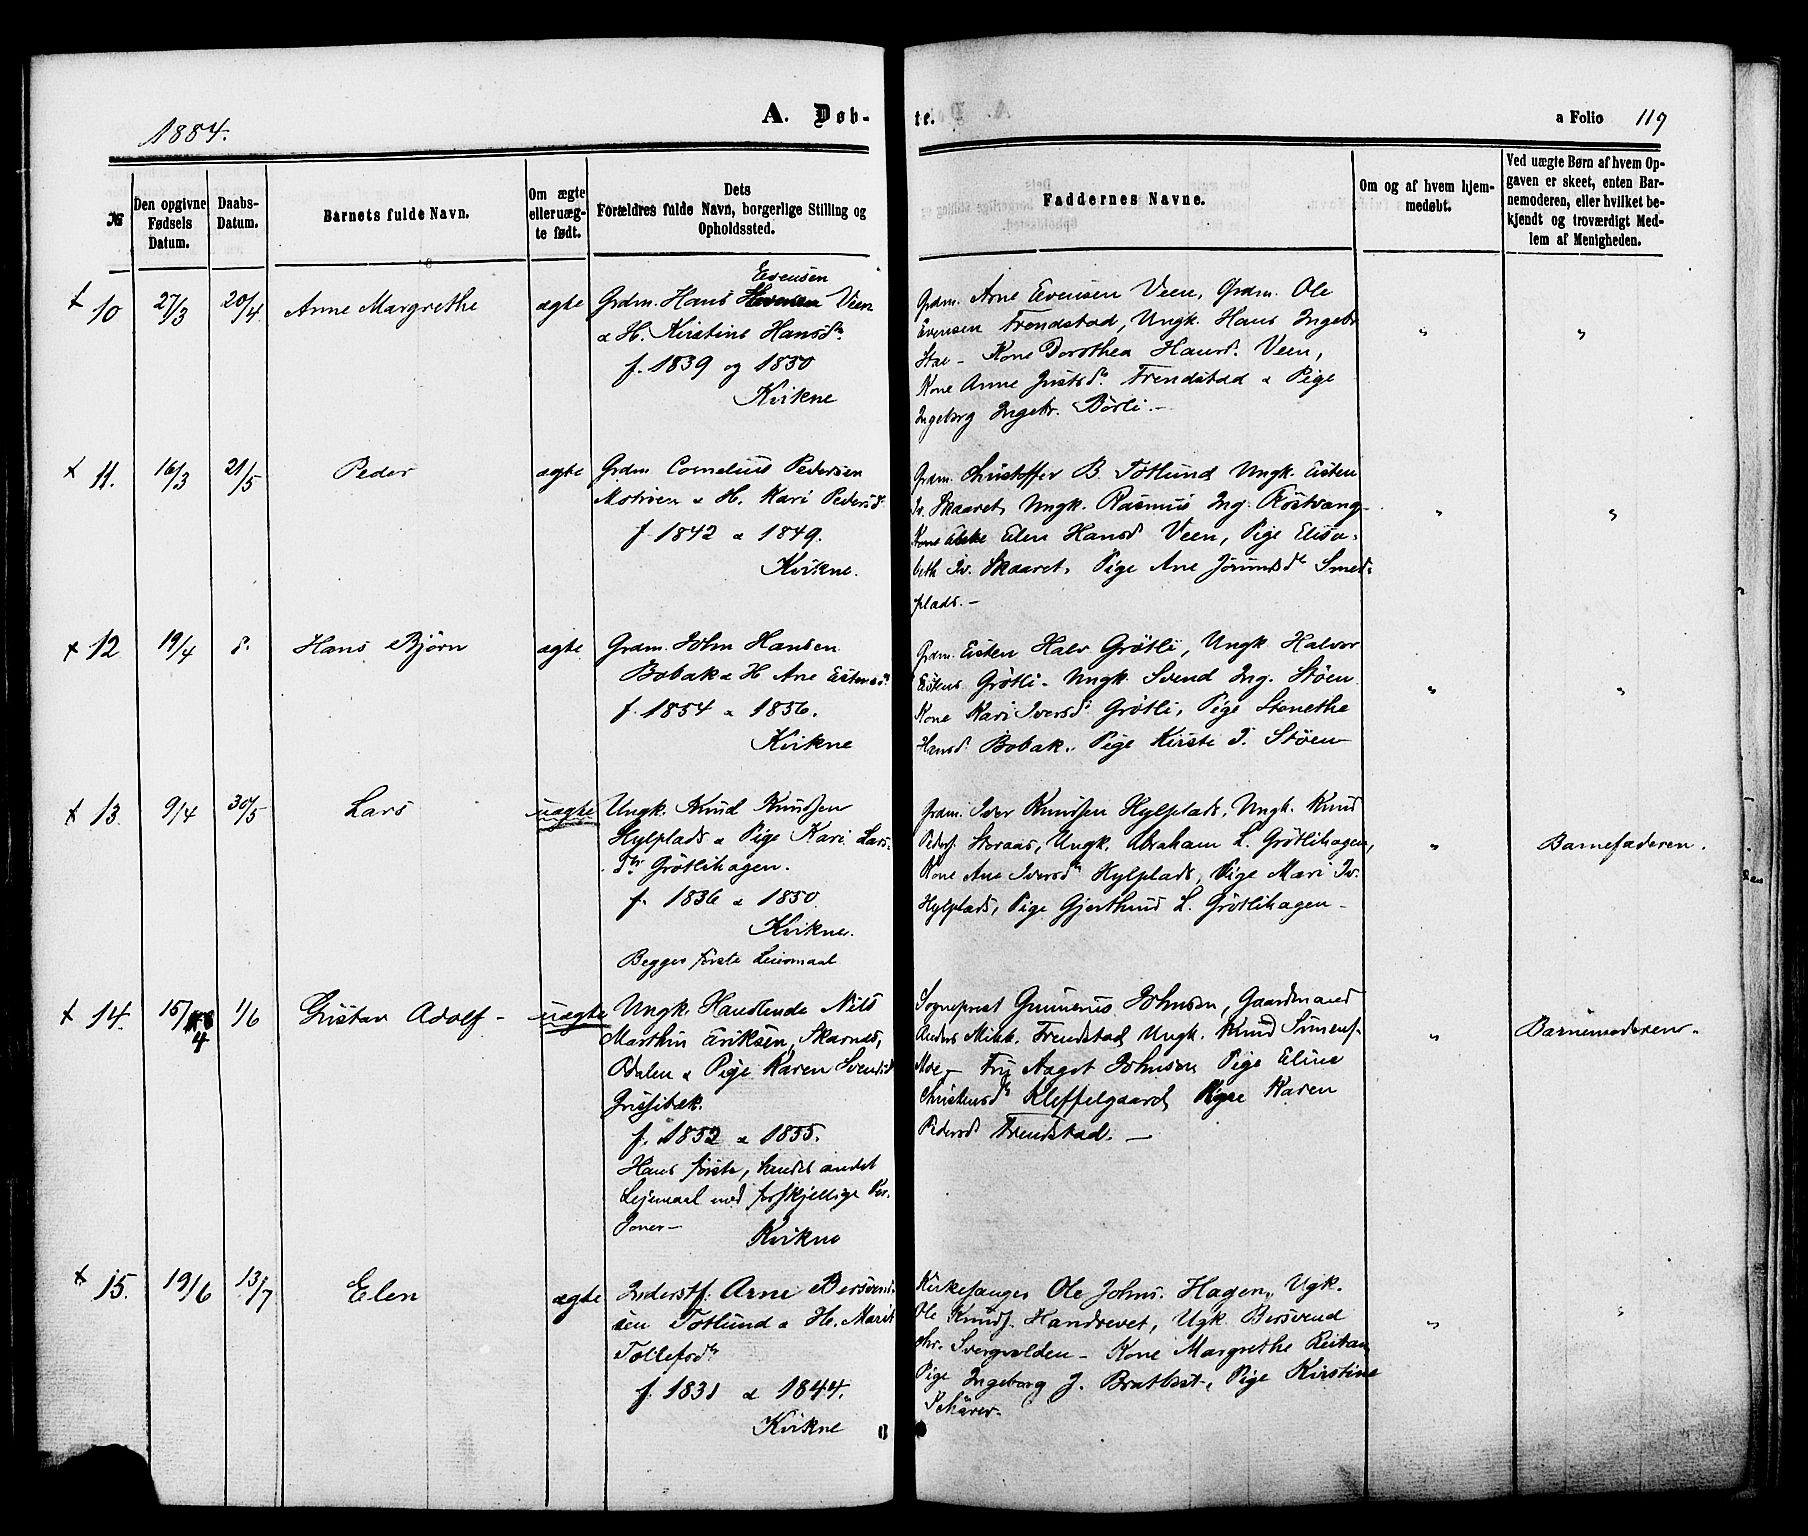 1884.
A. Døb-
te.
a Folio 119
№
Den opgivne Fødsels Datum.
Daabs-Datum.
Barnets fulde Navn.
Om ægte eller uæg-te født.
Dets Forældres fulde Navn, borgerlige Stilling og Opholdssted.
Faddernes Navne.
Om og af hvem hjem-medøbt.
Ved uægte Børn af hvem Op-gaven er skeet, enten Bar-nemoderen, eller hvilket be-kjendt og troværdigt Med-lem af Menigheden.
10 27/3 20/4 Anne Margrethe ægte
Evensen
Grdm. Hans Veen
& H. Kirstine Hansd.
f. 1839 og 1850
Kvikne
Grdm. Arne Evensen Veen, Grdm. Ole
Evensen Frendstad, Ungk. Hans Ingebr.
Stae - Kone Dorothea Hansd. Veen,
Kone Anne Justsd. Frendstad & Pige
Ingeborg Ingebr. Børli. -
" "
11. 16/3 21/5 Peder ægte
Grdm Cornelius Pedersen
Motroen & H. Kari Pedersd.
f. 1842 & 1849.
Kvikne.
Grdm. Christoffer B. Totlund Ungk. Eisten
Iv. Skaaret, Ungk. Rasmus Ing. Røstvang
Kone Elen Hansd Veen, Pige Elisa-
beth Iv. Skaaret, Pige Ane Jørundsd. Smed-
plads. -
" "
12 19/4 d. Hans Bjørn ægte
Grdm. John Hansen
Bobak & H Ane Eistensd.
f. 1854 & 1856.
Kvikne
Grdm. Eisten Halv Grøtli, Ungk Halvor
Eistens Grøtli - Ungk. Svend Ing. Støen
Kone Kari Iversd. Grøtli, Pige Stenethe
Hansd. Bobak. Pige Kirsti I. Støen
" "
13. 9/4 30/5 Lars uægte
Ungk. Knud Knudsen
Hylplads & Pige Kari Lars-
d. Grøtlihagen.
f. 1836 & 1850
Kvikne.
Begges første Leiermaal
Grdm. Iver Knudsen Hylplads, Ungk. Knud
Peders. Storaas, Ungk. Abraham L. Grøtlihagen,
Kone Ane Iversd Hylplads, Pige Mari Iv.
Hylplads, Pige Gjertrud L. Grøtlihagen -
" Barnefaderen.
14. 15/4 1/6 Gustav Adolf - uægte
Ungk. Handlende Nils
Marthin Eriksen, Skarnes,
Odalen & Pige Karen Svendsd
Grissibæk.
f. 1852 & 1855.
Hans første, hendes andet
Lejemaal med forskjellige Per-
soner -
Kvikne
Sogneprest Gunnerus Johnsen, Gaardmand
Anders Mikk. Frendstad Ungk. Knud Simens.
Moe - Fru Aagot Johnsen Pige Eline
Christensd. Kleffelgaard, Pige Karen
Pedersd Frendstad. -
" Barnemoderen.
15. 19/6 13/7 Elen ægte
Inderstf. Arne Bersvend-
sen Totlund & H. Marit
Tollefsd.
f. 1831 & 1844.
Kvikne
Kirkesanger Ole Johns. Hagen, Ugk.
Ole Knuds. Handrevet, Ugk. Bersvend
Chr. Svergvolden - Kone Margrethe Reitan
Pige Ingeborg J. Brattset, Pige Kirstine
Schärer.
" "